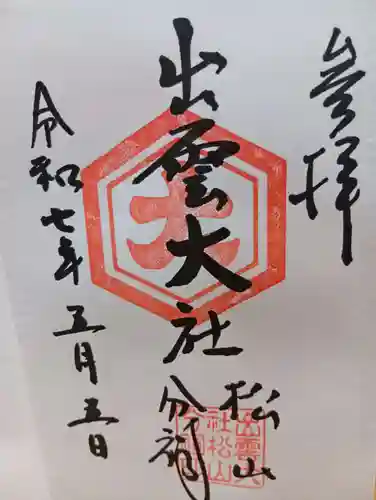 參拝
出雲大社
松山
分祠
令和七年五月五日
大
出雲大
社松山
分祠